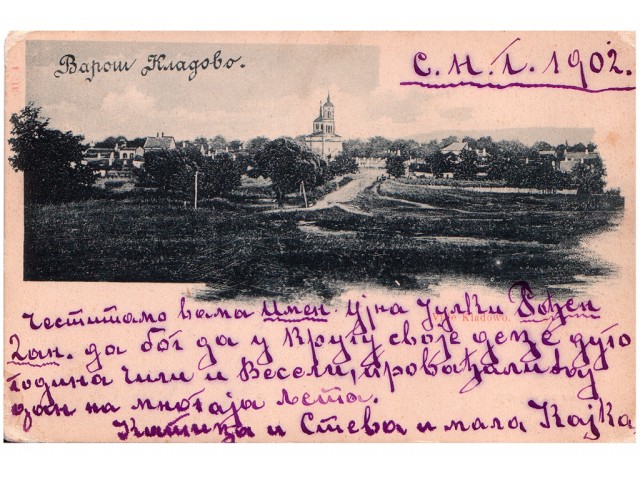 Варош Кладово.
С. Н. 1. 1902.
Честитамо вама Имен. Ујна Јулки Рођен
дан. да бог да у кругу своје деце дуго
година чили и Весели, провађали овај
дан на многаја љета.
Kladowo.
Катица и Стева и мала Кајка